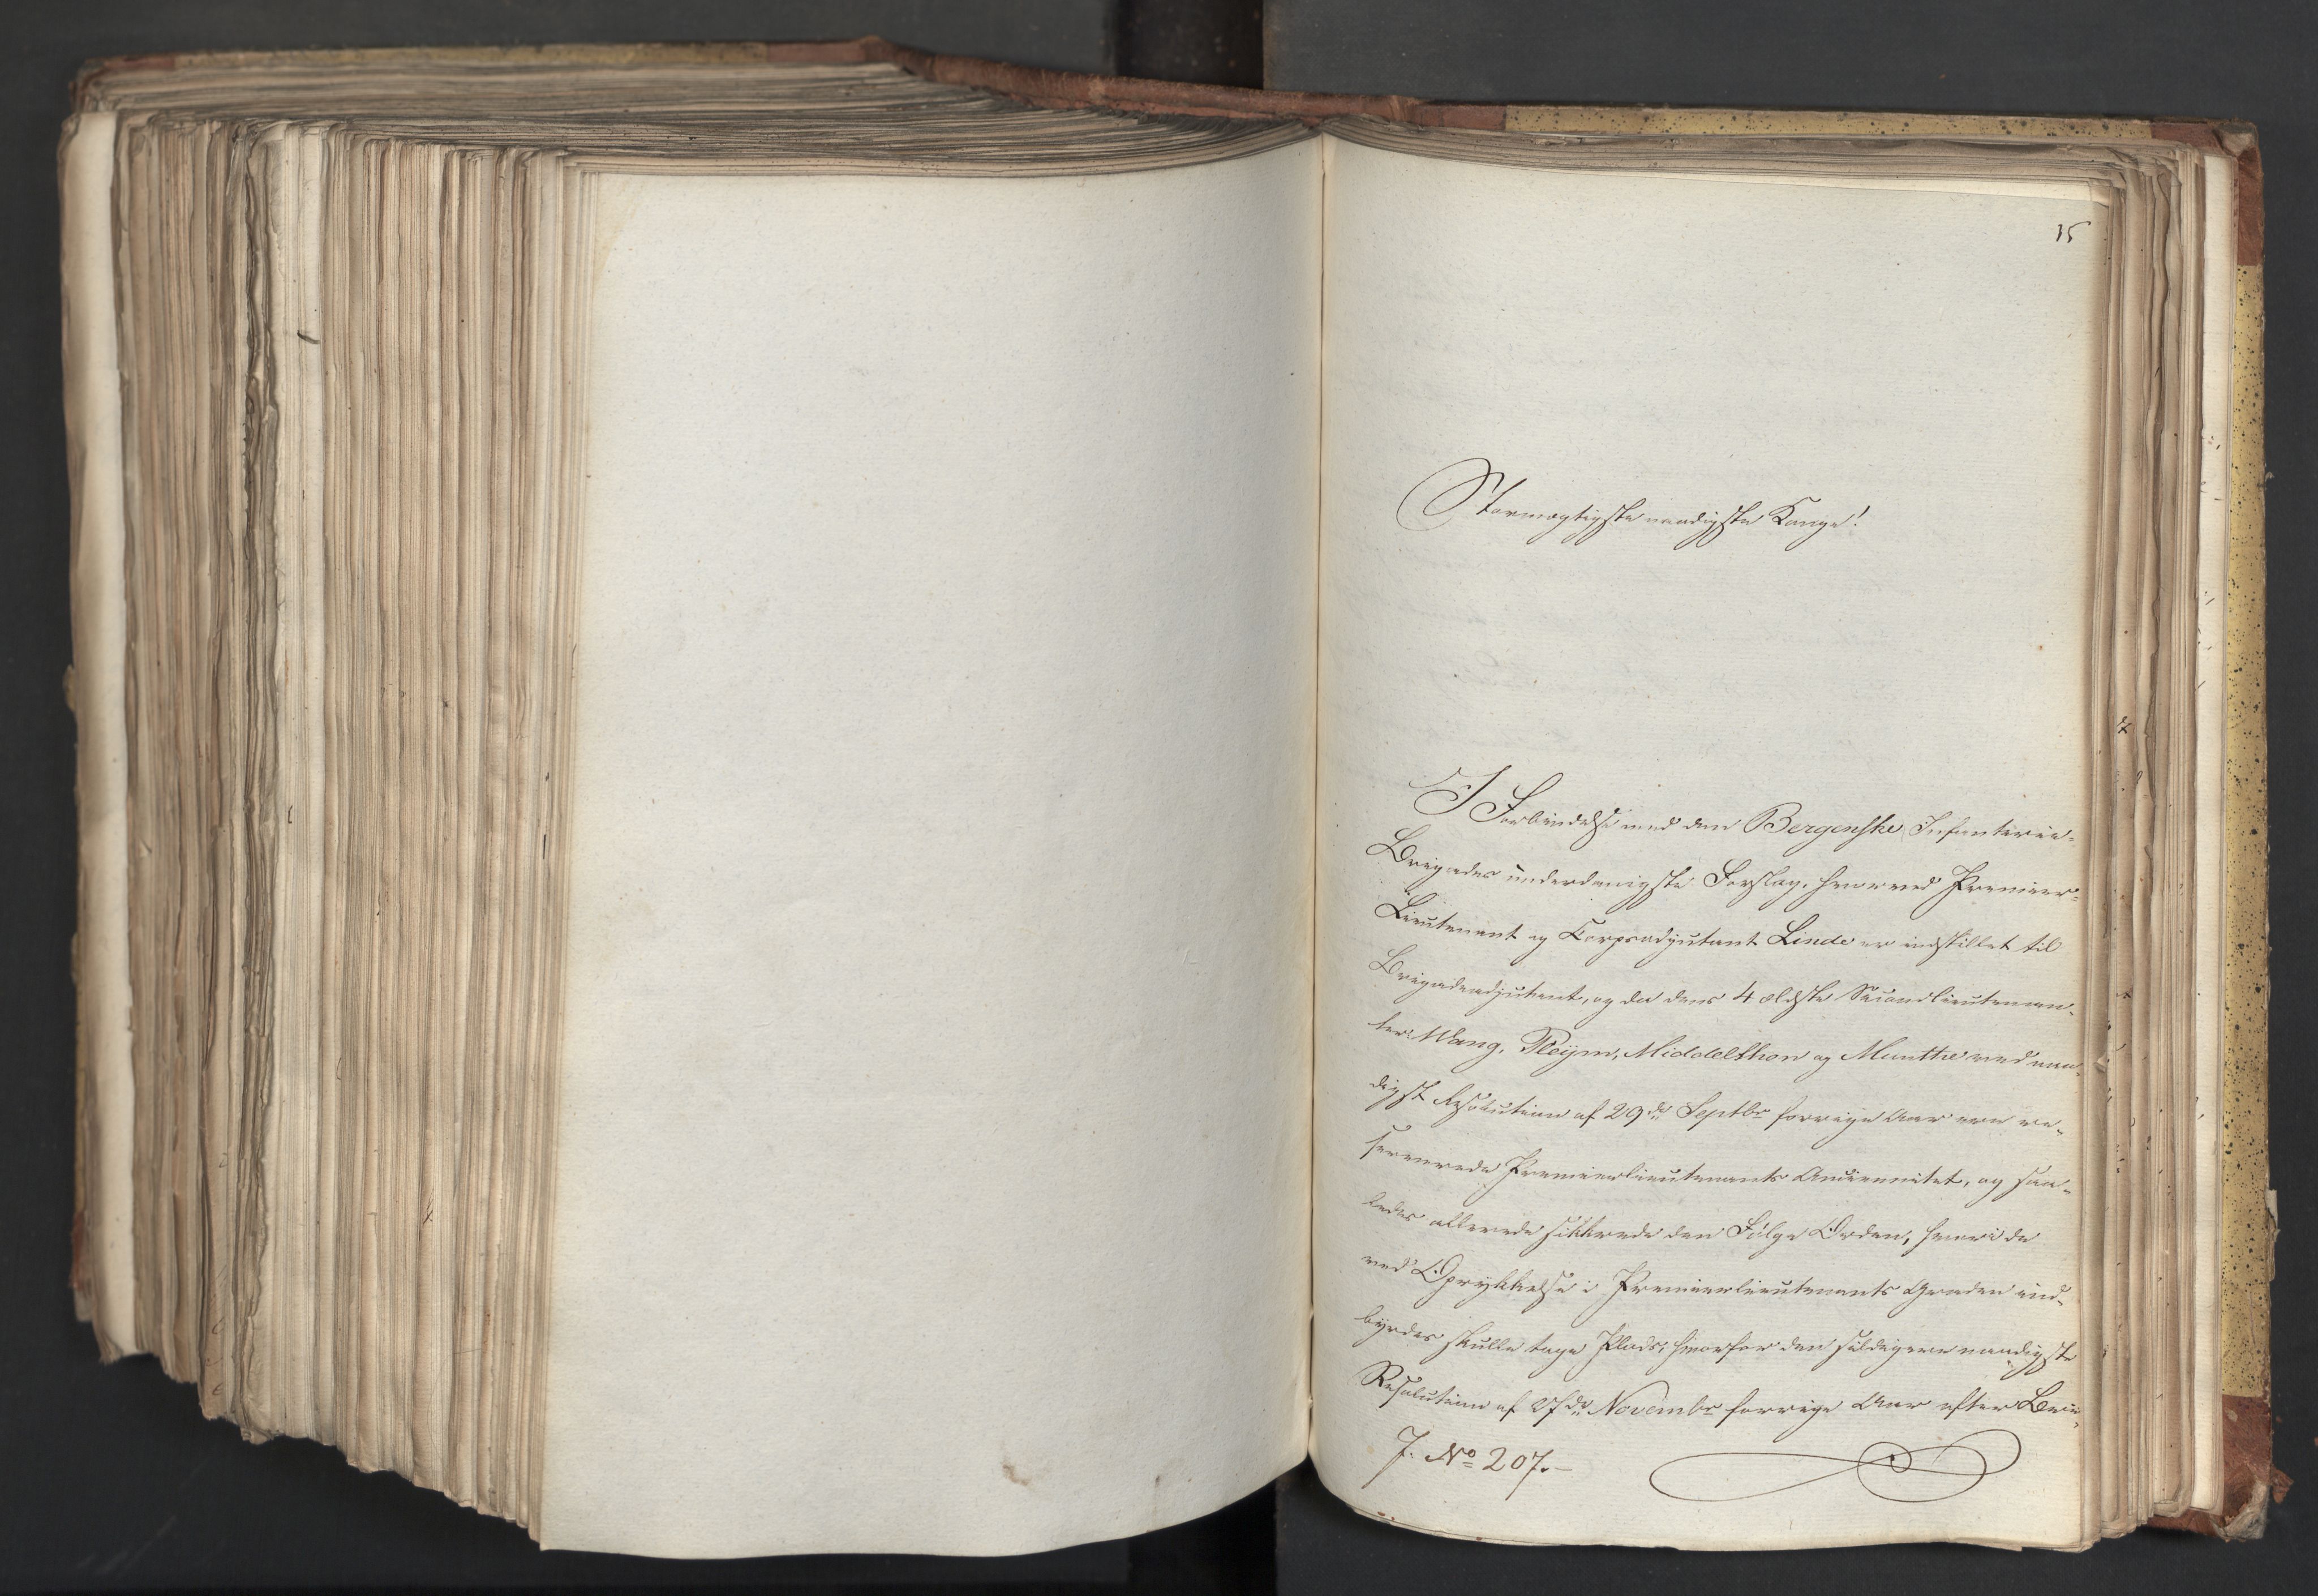 15
Stormægtigste naadigste Konge!
I Forbindelse med den Bergenske Infanterie-
Brigades underdanigste Forslag, hvorved Premier-
Lieutenant og Corpsadjutant Linde er indstillet til
Brigadeadjutant, og da dens 4 ældste Secondlieutenan-
ter Wang, Pleÿm, Middelthon og Munthe ved naa-
digst Resolution af 29de Septbr forrige Aar ere re-
serverede Premierlieutenants Anciennitet, og saa-
ledes allerede sikkrede den Følge Orden, hvori de
ved Oprykkelse i Premierlieutenants Graden ind-
byrdes skulle tage Plads, hvorfor den sildigere naadigste
Resolution af 27de Novembr forrige Aar efter Bri-
J. No 207.-